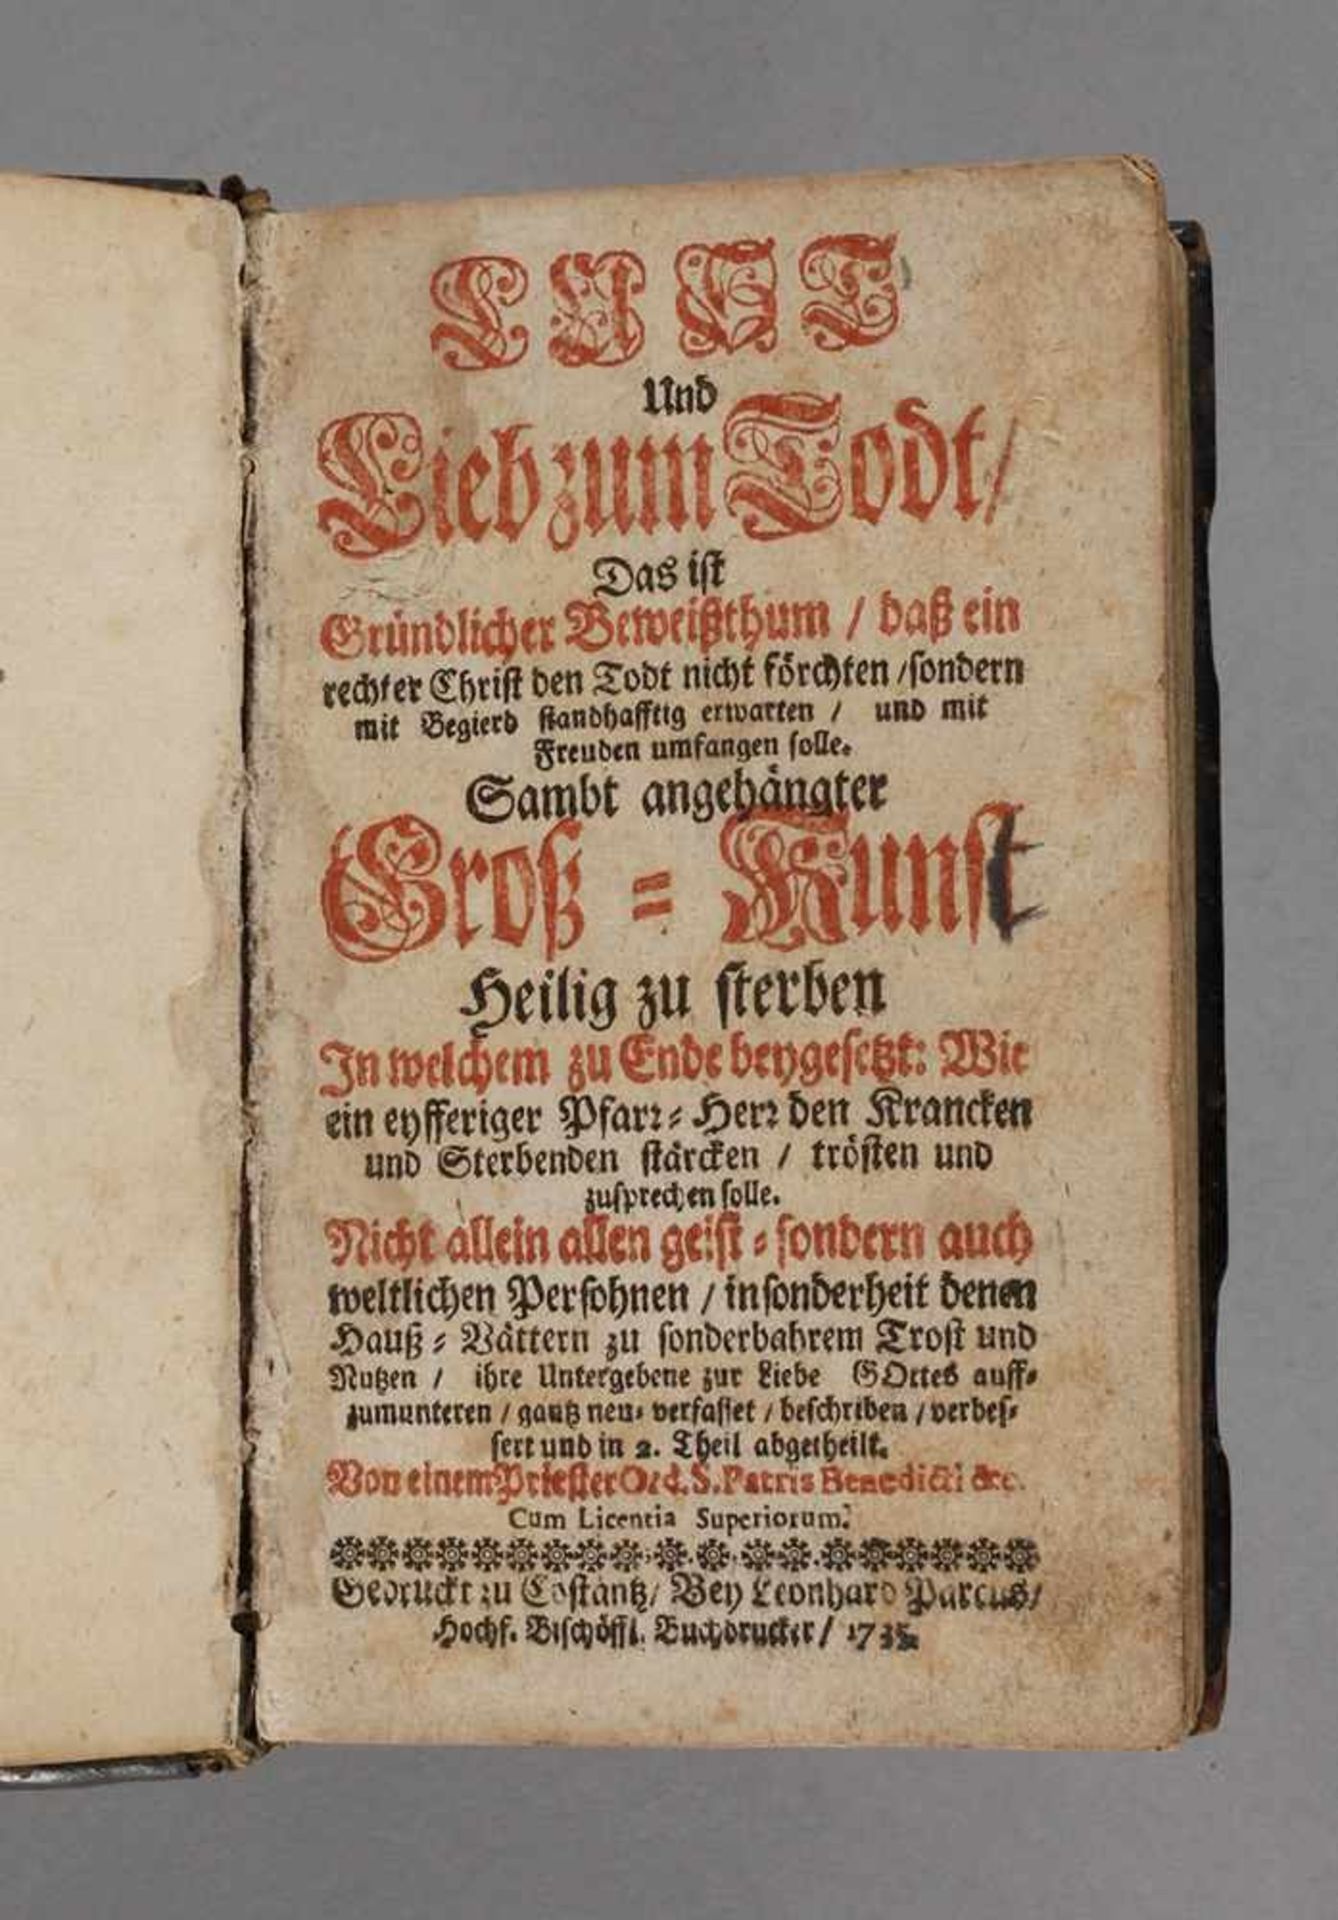 LUST
Und
Lieb zum Todt /
Das ist
Gründlicher Beweißthum / daß ein
rechter Christ den Todt nicht förchten / sondern
mit Begierd standhafftig erwarten / und mit
Freuden umfangen solle.
Sambt angehängter
Groß = Kunst
Heilig zu sterben
In welchem zu Ende beygesetzt: Wie
ein eyfferiger Pfarr = Herr den Krancken
und Sterbenden stärcken / trösten und
zusprechen solle.
Nicht allein allen geist = sondern auch
weltlichen Persohnen / insonderheit denen
Hauß = Vättern zu sonderbahrem Trost und
Nutzen / ihre Untergebene zur Liebe GOttes auff=
zumunteren / gantz neu= verfasset / beschriben / verbes=
sert und in 2. Theil abgetheilt.
Von einem Priester Ord. S. Patris Benedicti &c.
Cum Licentia Superiorum.
Gedruckt zu Costantz / Bey Leonhard Parcus /
Hochf. Bischöffl. Buchdrucker / 1735.